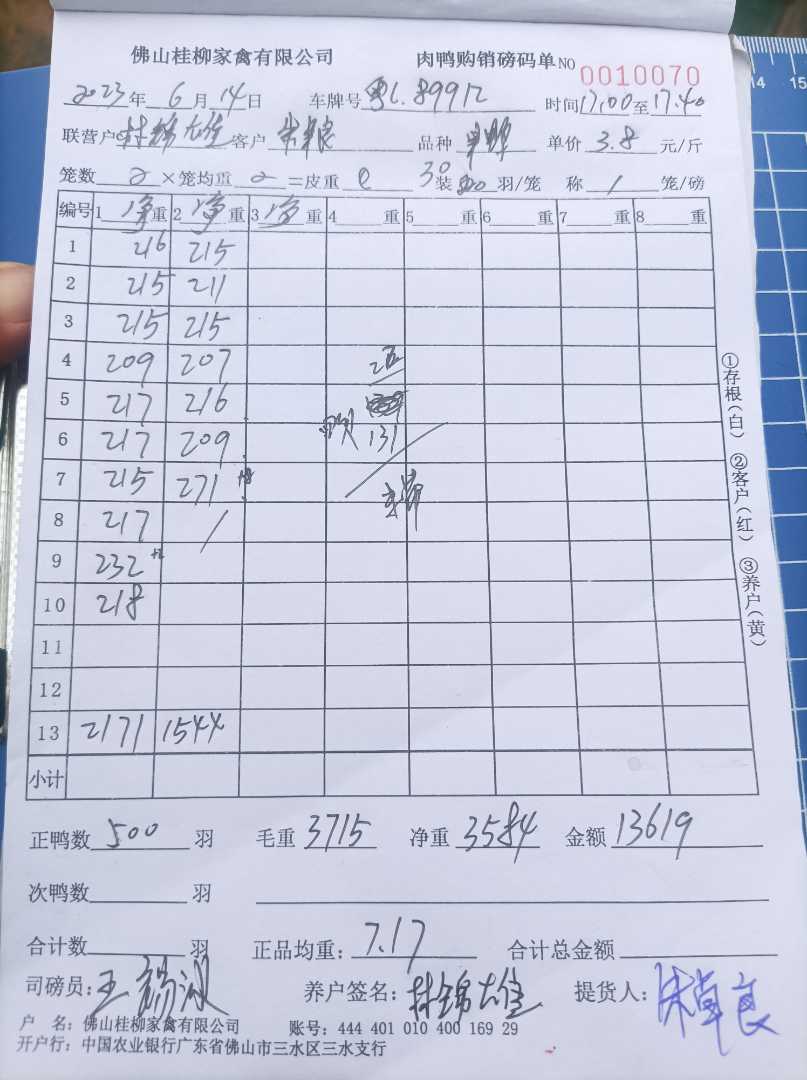 佛山桂柳家禽有限公司 肉鸭购销磅码单 NO 0010070
2023年 6月 14日 车牌号 粤L.8991Z 时间 17.00 至 17.40
联营户 林锦大佳 客户 朱卓良 品种 单价 3.8 元/斤
笼数 2 ×笼均重 2 =皮重 0 30装 羽/笼 称 1 笼/磅
编号 1 净重 2 净重 3 净重 4 重 5 重 6 重 7 重 8 重
1 216 215
2 215 211
3 215 215
4 209 207
5 217 216
6 217 209 131
7 215 271 +8
8 217 /
9 232 +2
10 218
11
12
13 2171 1544
小计
①存根(白) ②客户(红) ③养户(黄)
正鸭数 500 羽 毛重 3715 净重 3584 金额 13619
次鸭数 羽
合计数 羽 正品均重: 7.17 合计总金额
司磅员: 王 养户签名: 林锦大佳 提货人: 朱卓良
户 名: 佛山桂柳家禽有限公司 账号: 444 401 010 400 169 29
开户行: 中国农业银行广东省佛山市三水区三水支行
14 15